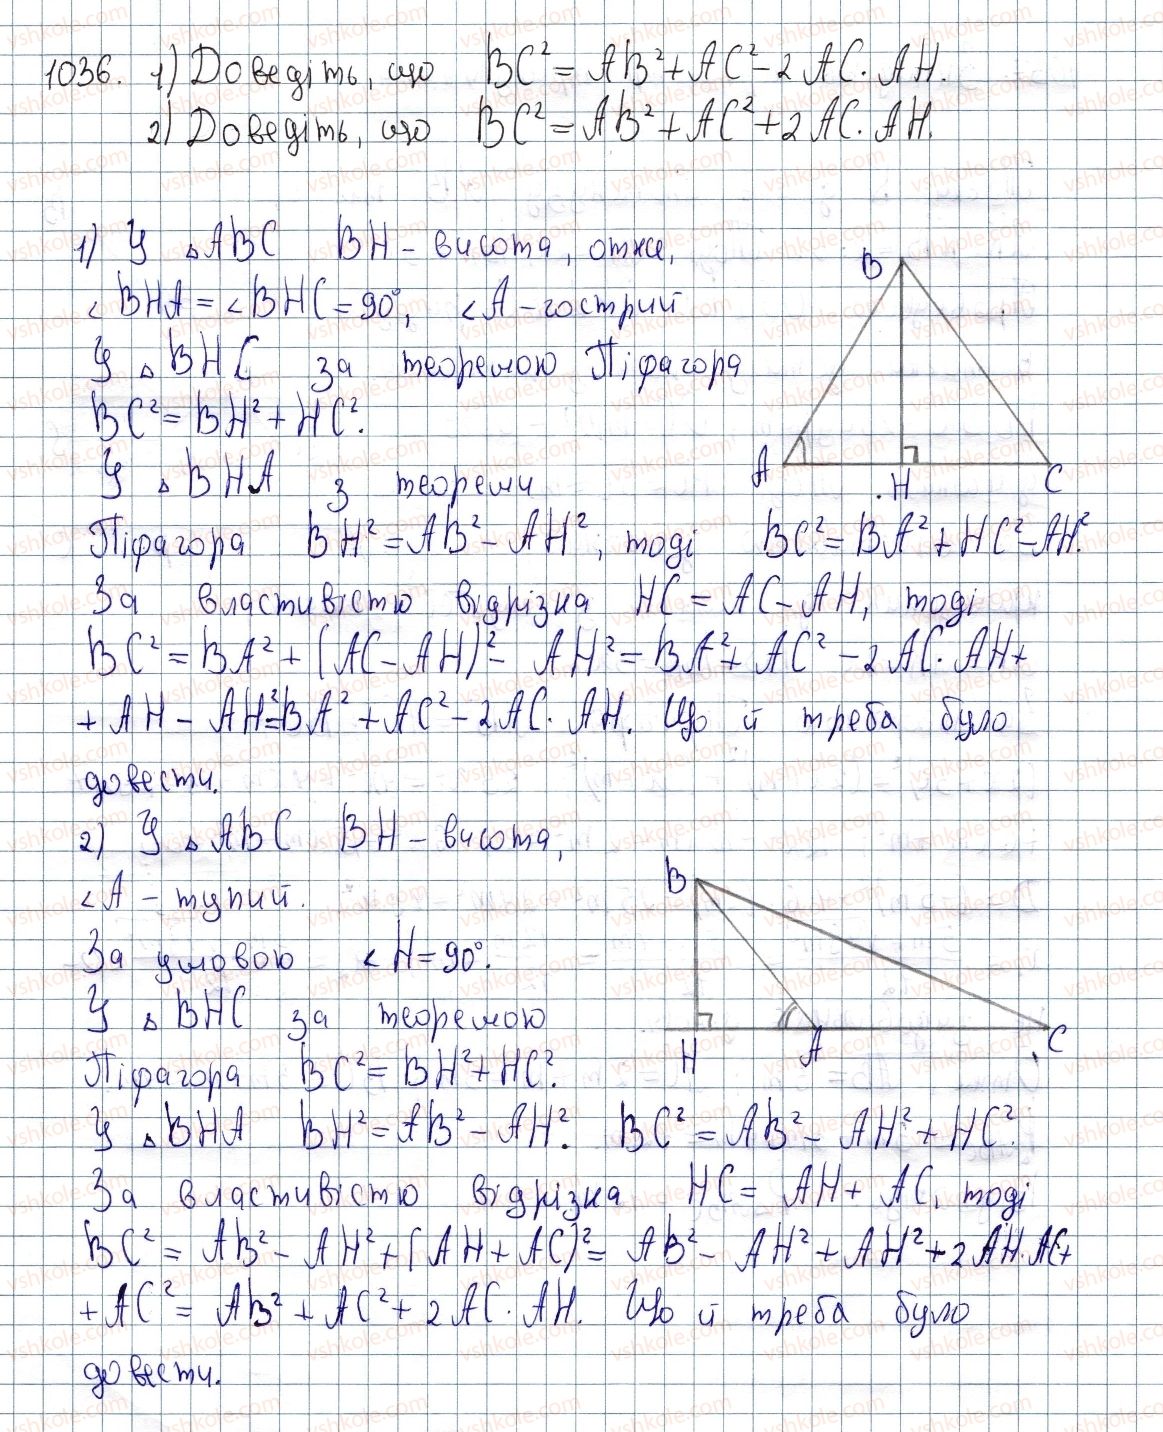 1036. 1) Доведіть, що BC² = AB² + AC² - 2AC · AH.
2) Доведіть, що BC² = AB² + AC² + 2AC · AH.
1) У △ABC BH – висота, отже,
∠BHA = ∠BHC = 90°, ∠A – гострий
У △BHC за теоремою Піфагора
BC² = BH² + HC².
У △BHA з теореми
Піфагора BH² = AB² - AH², тоді BC² = BA² + HC² - AH².
За властивістю відрізка HC = AC - AH, тоді
BC² = BA² + (AC - AH)² - AH² = BA² + AC² - 2AC · AH +
+ AH - AH² = BA² + AC² - 2AC · AH. Що й треба було
довести.
B
A
H
C
2) У △ABC BH – висота,
∠A – тупий.
За умовою ∠H = 90°.
У △BHC за теоремою
Піфагора BC² = BH² + HC².
У △BHA BH² = AB² - AH². BC² = AB² - AH² + HC².
За властивістю відрізка HC = AH + AC, тоді
BC² = AB² - AH² + (AH + AC)² = AB² - AH² + AH² + 2AH · AC +
+ AC² = AB² + AC² + 2AC · AH. Що й треба було
довести.
B
H
A
C
vshkole.com